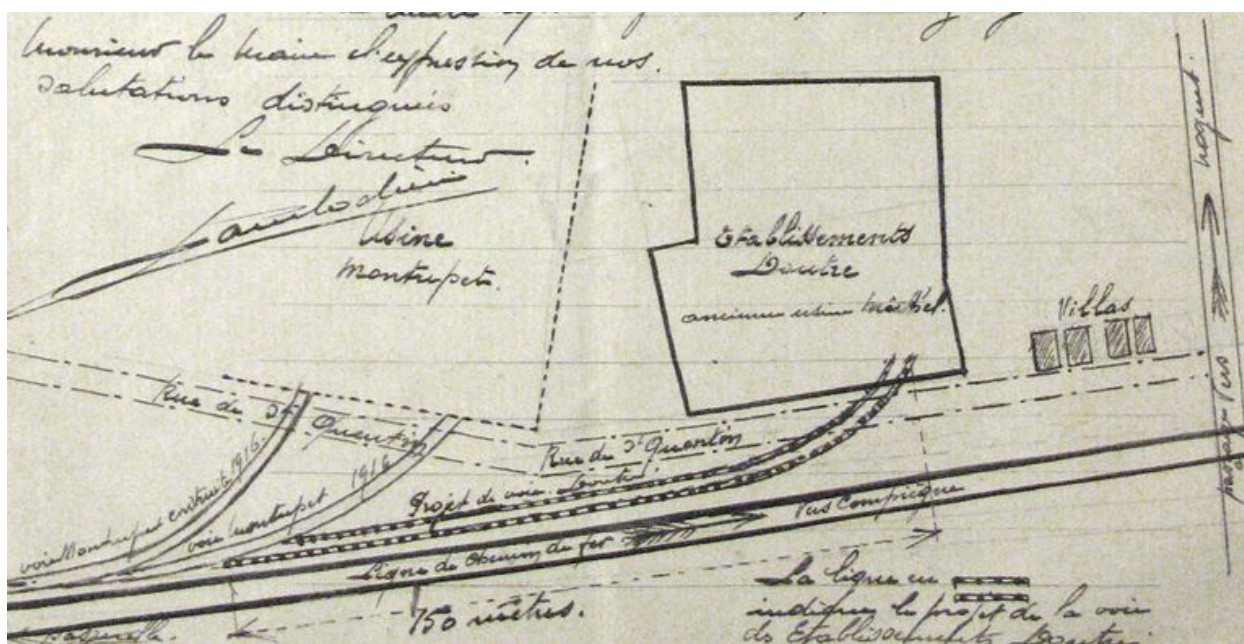 Monsieur le Maire l'expression de nos
salutations distinguées
Le Directeur.
Usine
Montupet.
Etablissements
Doutre
ancienne usine
Villas
Rue de St Quentin
Rue de St Quentin
voie Montupet construite 1916.
voie Montupet 1916
Projet de voie Doutre
Ligne de Chemin de fer
Vers Compiègne
150 mètres.
passerelle.
passage Vers
La ligne en
indique le projet de la voie
des Etablissements Doutre